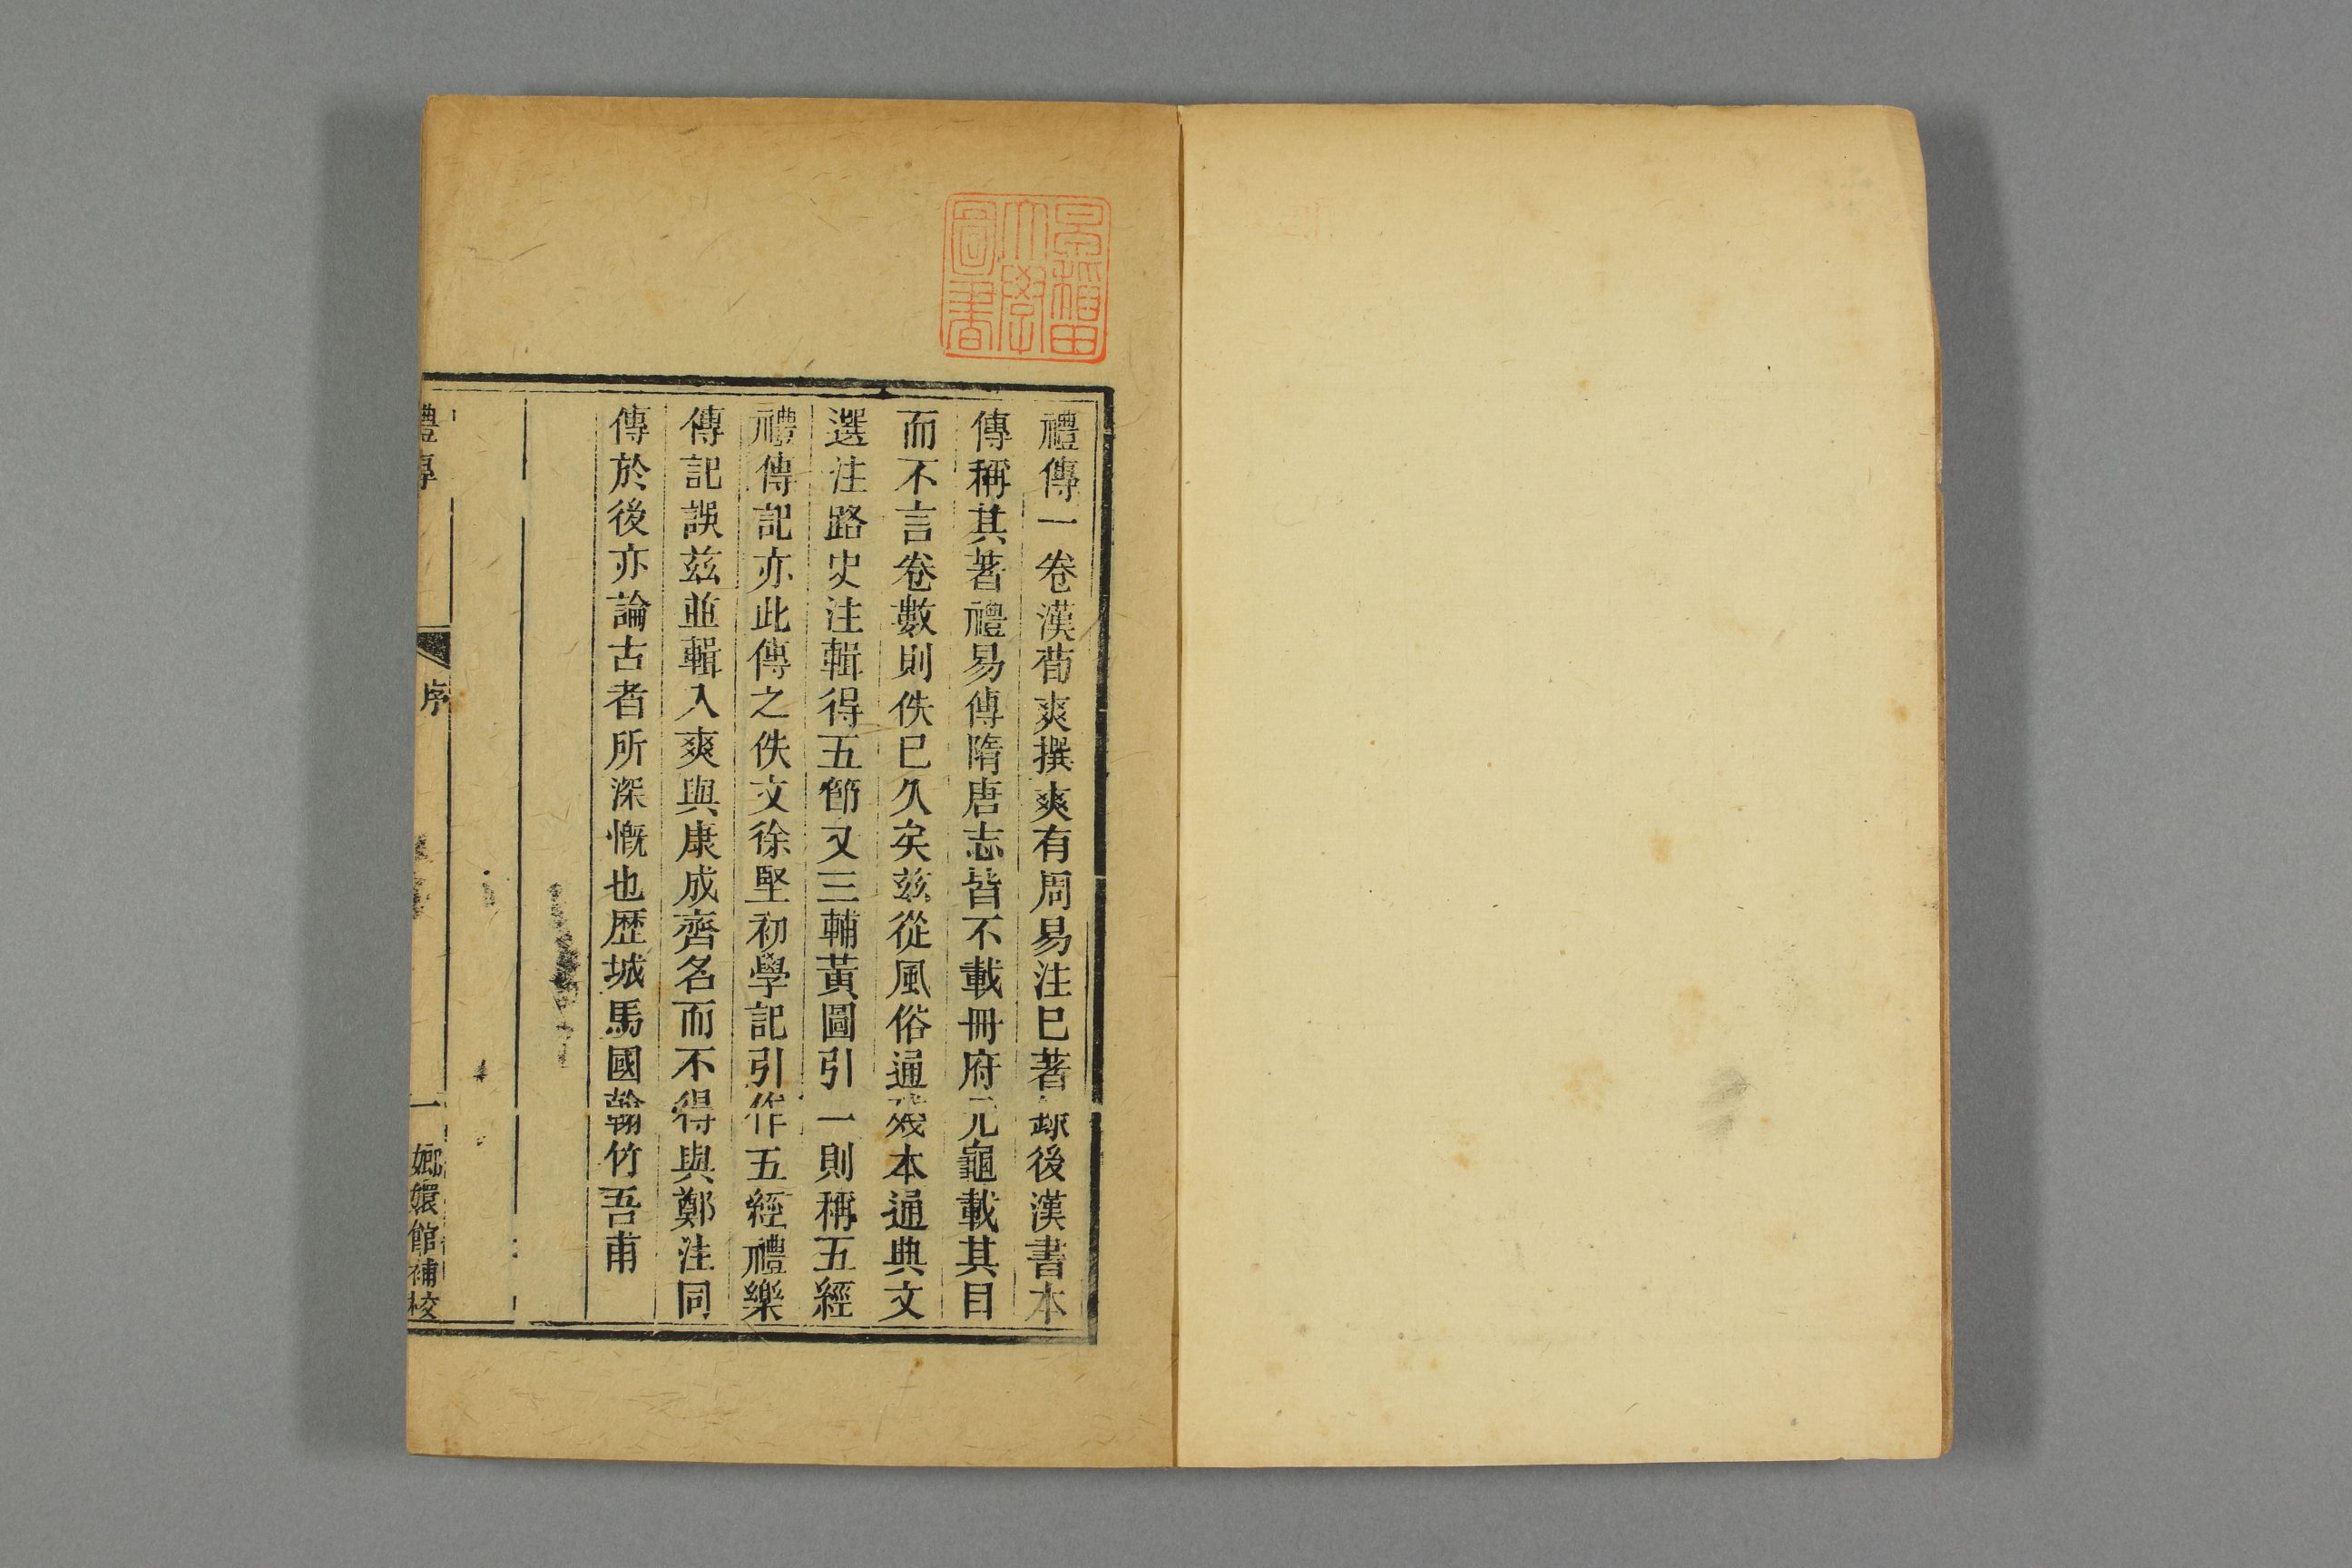 早稲田
大學
圖書
禮傳一卷漢荀爽撰爽有周易注巳著錄後漢書本
傳稱其著禮易傳隋唐志皆不載冊府元龜載其目
而不言卷數則佚巳久矣兹從風俗通殘本通典文
選注路史注輯得五節又三輔黃圖引一則稱五經
禮傳記亦此傳之佚文徐堅初學記引作五經禮樂
傳記誤兹並輯入爽與康成齊名而不得與鄭注同
傳於後亦論古者所深慨也歷城馬國翰竹吾甫
禮傳 序 一 嫏嬛館補校